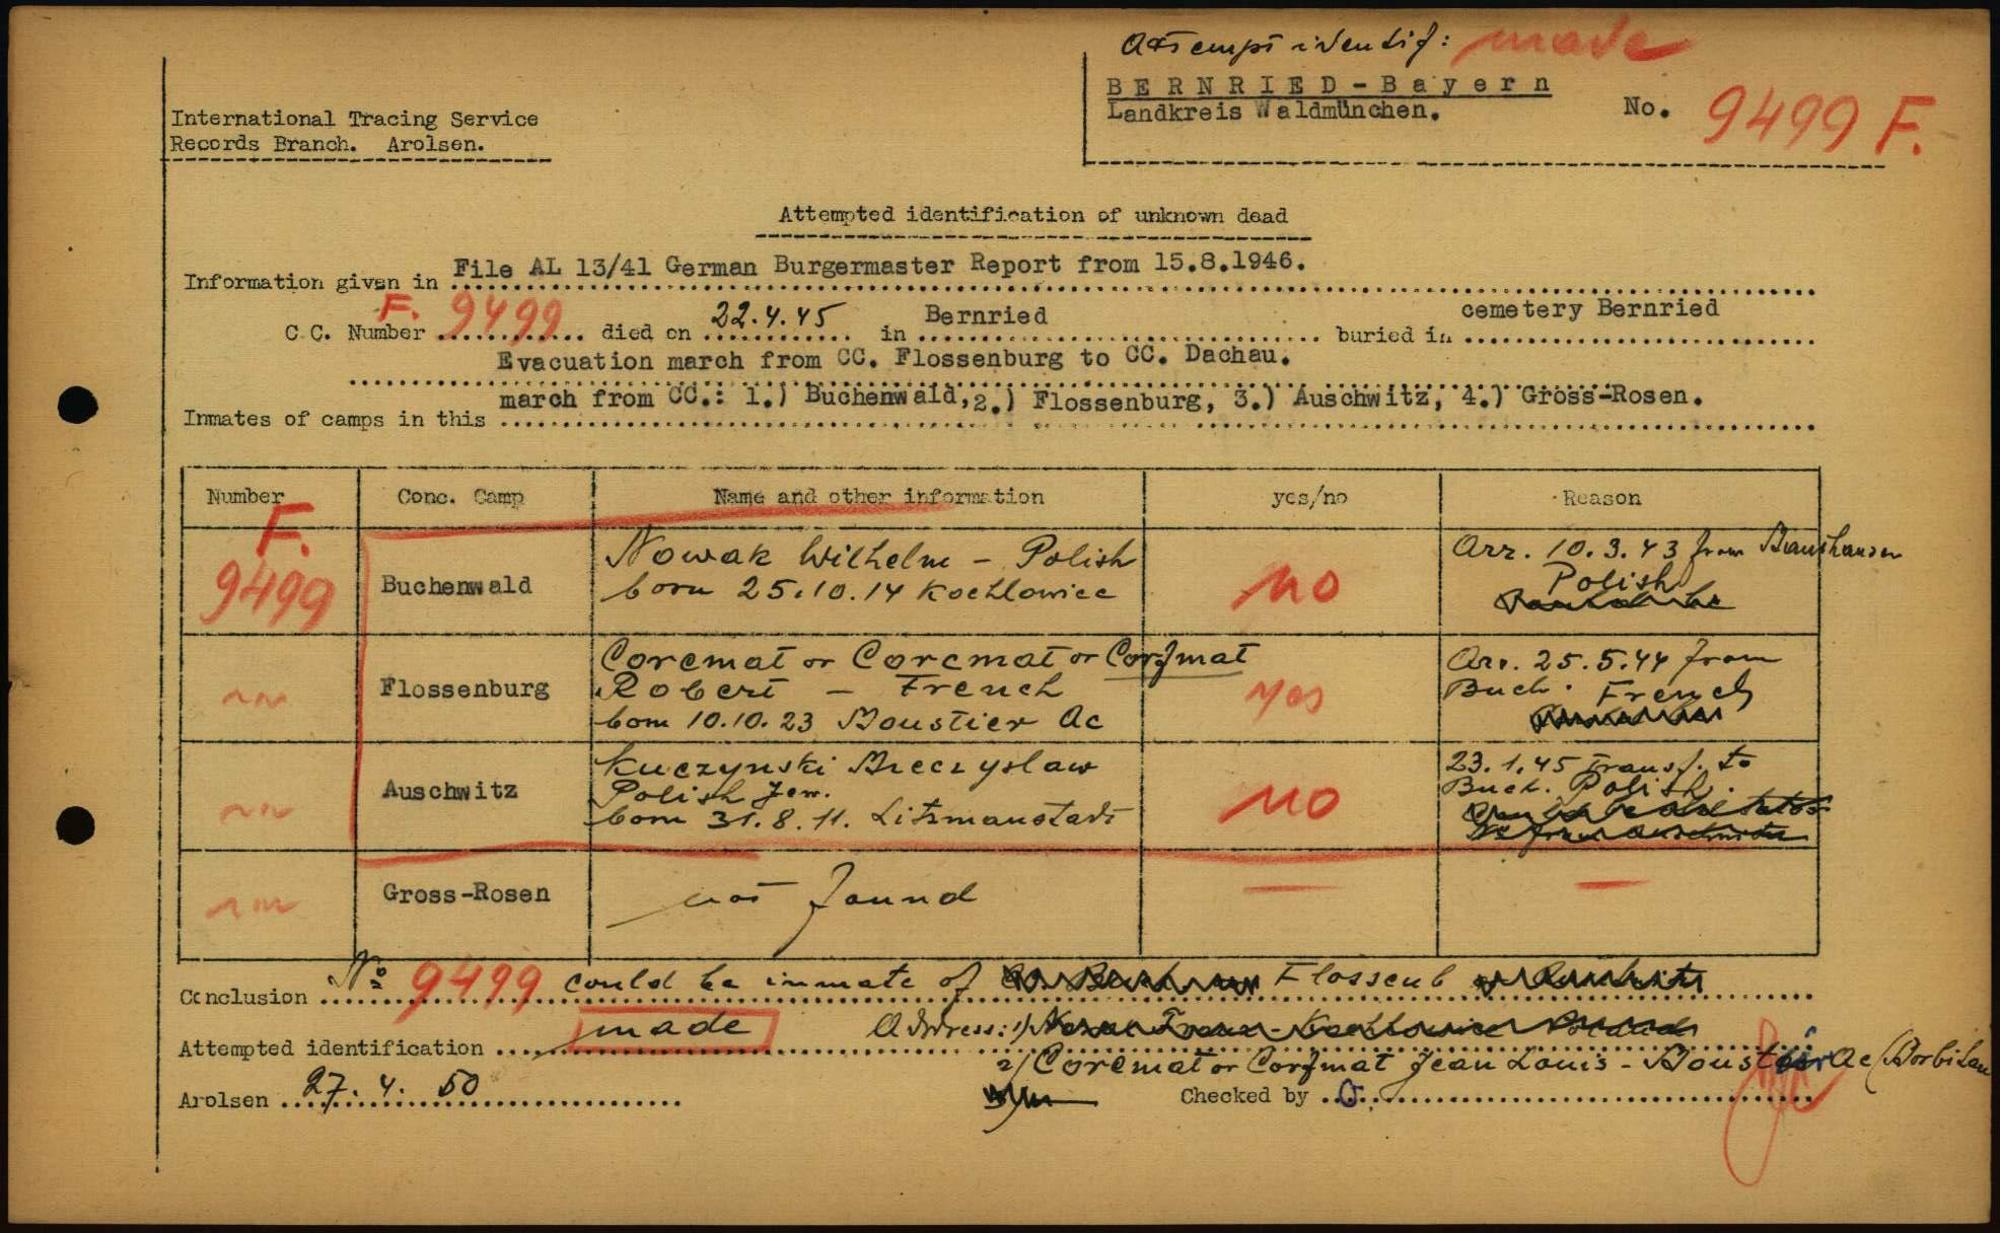 Attempt identif: made
BERNRIED-Bayern
Landkreis Waldmünchen.
No. 9499 F.
International Tracing Service
Records Branch. Arolsen.
Attempted identification of unknown dead
Information given in File AL 13/41 German Burgermaster Report from 15.8.1946.
C.C. Number F. 9499 died on 22.4.45 in Bernried buried in cemetery Bernried
Evacuation march from CC. Flossenburg to CC. Dachau.
Inmates of camps in this march from CC.: 1.) Buchenwald, 2.) Flossenburg, 3.) Auschwitz, 4.) Gross-Rosen.
Number Conc. Camp Name and other information yes/no Reason
F.
9499
Buchenwald
Nowak Wilhelm - Polish
born 25.10.14 Kochlowice
no
Arr. 10.3.43 from
Polish
Flossenburg
Coremat or Corcmat or Corfmat
Robert - French
born 10.10.23 Boustier Ac
yes
Arr. 25.5.44 from
Buch. French
Auschwitz
Kuczynski Mieczyslaw
Polish Jew.
born 31.8.11. Litzmanstadt
no
23.1.45 Transf. to
Buch. Polish.
Gross-Rosen
not found
Conclusion No 9499 could be inmate of Flossenb
Attempted identification made Address: 1)
2) Coremat or Corfmat Jean Louis - Boustier Ac
Arolsen 27.4.50 Checked by